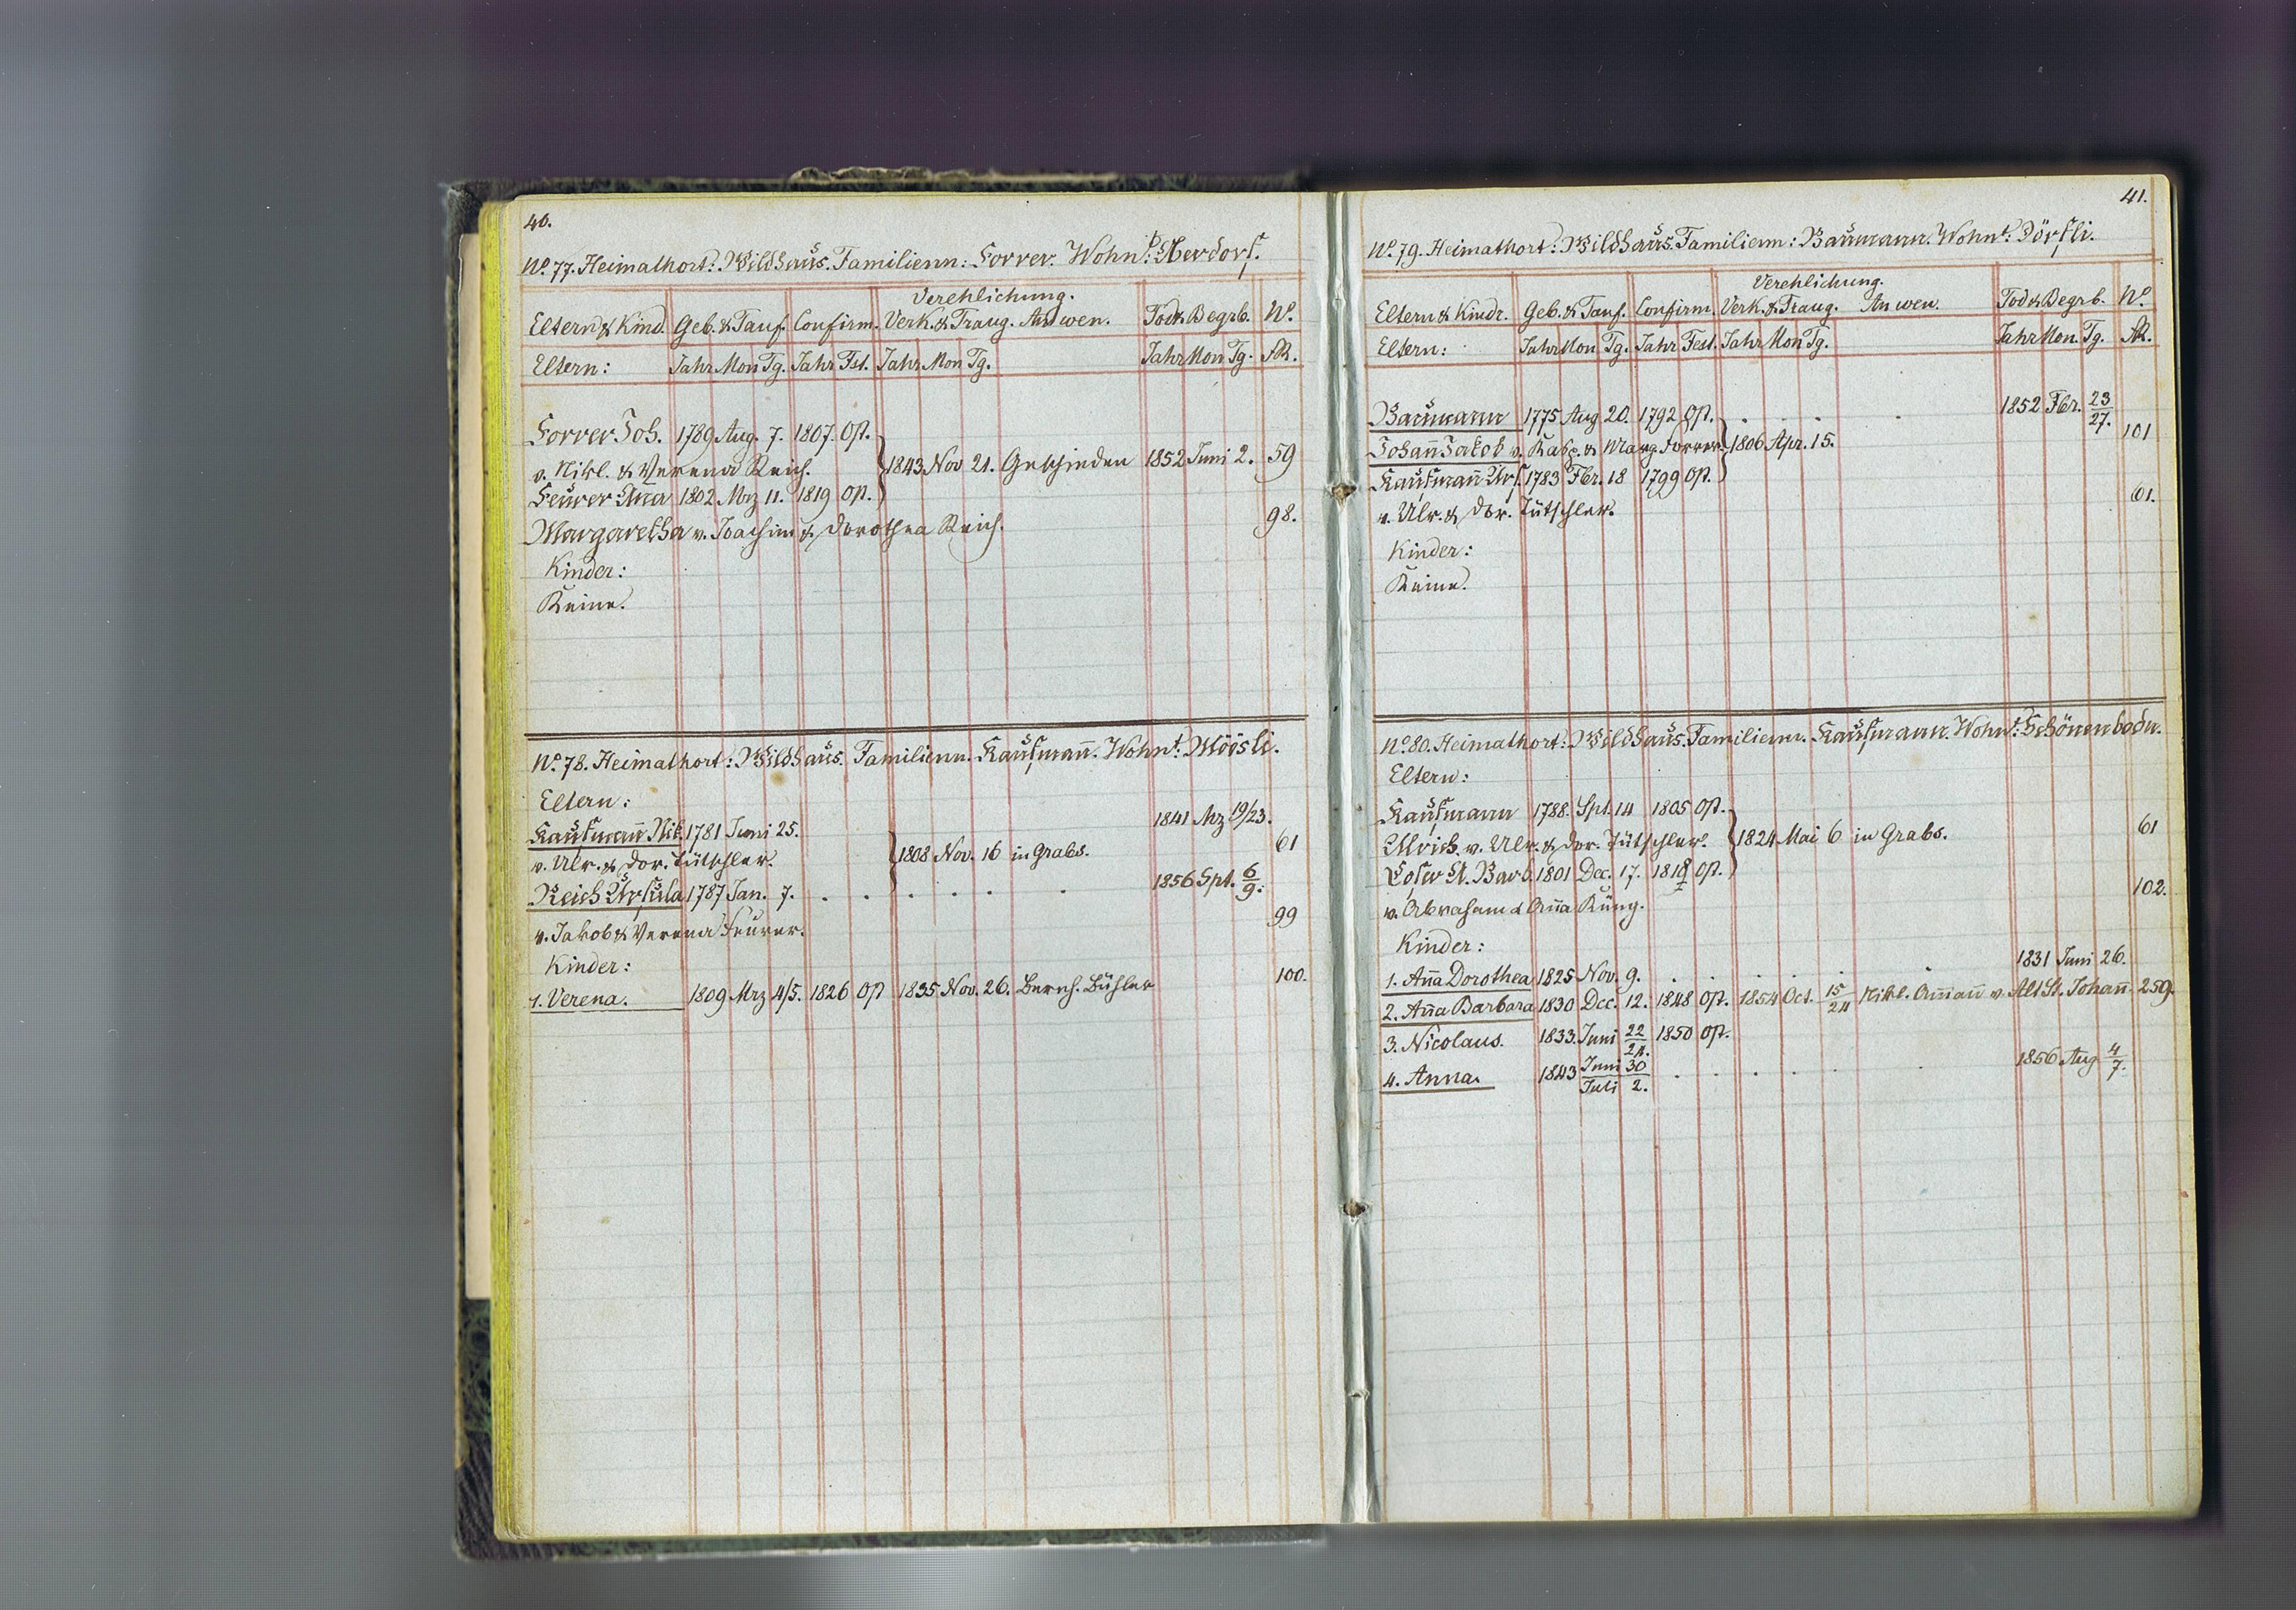 40.
No. 77. Heimathort: Wildhaus. Familienn: Forrer. Wohnt:
Verehlichung.
Eltern & Kind. Geb. & Tauf. Confirm. Verk. & Traug. An wen. Tod & Begrb. No.
Eltern: Jahr Mon Tg. Jahr Fst. Jahr Mon Tg. Jahr Mon Tg. FR.
Forrer Joh. 1789 Aug. 7. 1807. Ost.
v. Nikl. & Verena Reich. 1843 Nov 21. Geschieden 1852 Juni 2. 59
Feurer Aña 1802 Mrz 11. 1819 Ost.
Margaretha v. Joachim & Dorothea Reich. 98.
Kinder:
Keine.
No. 78. Heimathort: Wildhaus. Familienn. Kaufmañ. Wohnt: Möösli.
Eltern:
Kaufmañ Nik. 1781 Juni 25. 1841 Mz 19/23.
v. Ulr. & Dor. Tütschler. 1808 Nov. 16 in Grabs. 61
Reich Ursula 1787 Jan. 7. . . . . . . 1856 Spt. 6/9.
v. Jakob & Verena Feurer. 99
Kinder:
1. Verena. 1809 Mrz 4/5. 1826 Ost 1835 Nov. 26. Bernh. Bühler 100.
41.
No. 79. Heimathort: Wildhaus. Familienn: Baumann. Wohnt: Dörfli.
Verehlichung.
Eltern & Kindr. Geb. & Tauf. Confirm. Verk. & Traug. An wen. Tod & Begrb. No.
Eltern: Jahr Mon Tg. Jahr Fest. Jahr Mon Tg. Jahr Mon. Tg. FR.
Baumann 1775 Aug 20. 1792 Ost. . . . . 1852 Fbr. 23/27.
Johañ Jakob v. Kasp. & Marg. Forrer. 1806 Apr. 15. 101
Kaufmañ Urs. 1783 Fbr. 18 1799 Ost.
v. Ulr. & Dor. Tütschler. 61.
Kinder:
Keine.
No. 80. Heimathort: Wildhaus. Familienn. Kaufmann. Wohnt: Schönenbodn.
Eltern:
Kaufmann 1788. Spt. 14 1805 Ost.
Ulrich. v. Ulr. & Dor. Tütschler. 1824 Mai 6 in Grabs. 61
A. Barb. 1801 Dec. 17. Ost.
v. Abraham & Aña Küng. 102.
Kinder:
1. Aña Dorothea 1825 Nov. 9. . . . . . . 1831 Juni 26.
2. Aña Barbara 1830 Dec. 12. 1848 Ost. 1854 Oct. 15/24 Nikl. Amañ v. Alt St. Johañ. 259.
3. Nicolaus. 1833. Juni 22/24. 1850 Ost.
4. Anna. 1843 Juni 30/Juli 2. . . . . . . 1856 Aug 4/7.